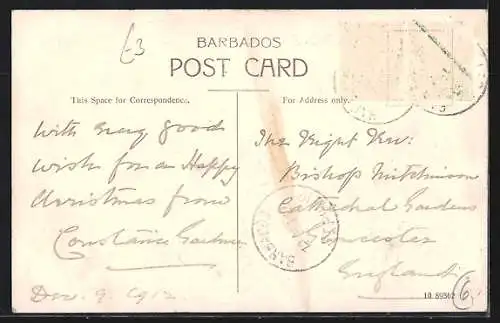 £3
BARBADOS
POST CARD
This Space for Correspondence.
For Address only.
With every good
wish for a Happy
Christmas from
Constance
Dec. 9. 1912
The Right Rev:
Bishop Mitchinson
Cathedral Gardens
Gloucester
England
BARBADOS
10 89362
6